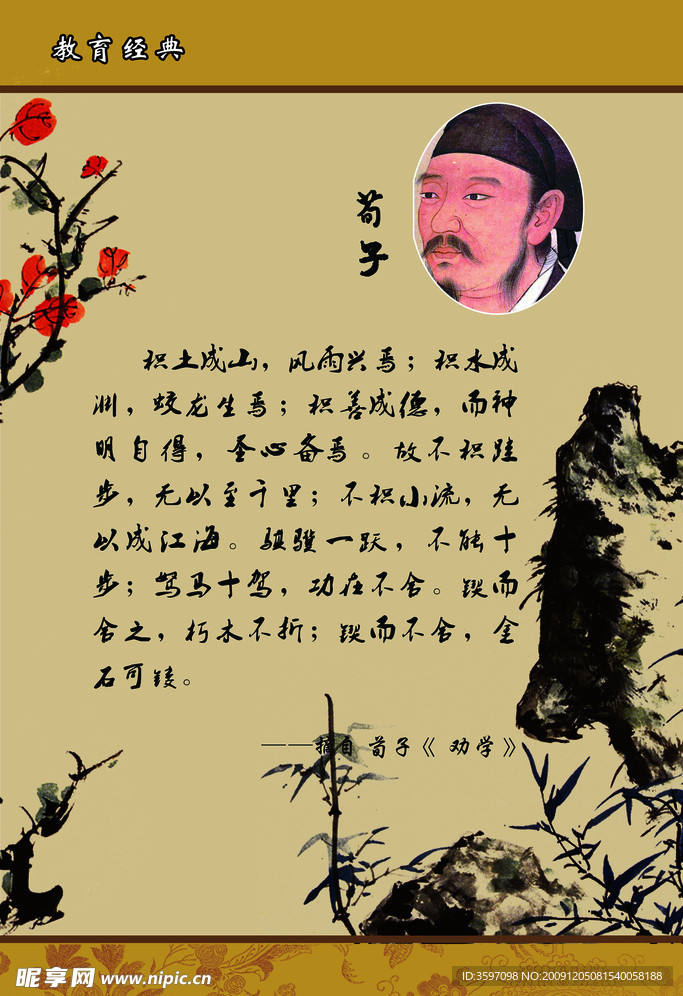 教育经典
荀子
积土成山，风雨兴焉；积水成
渊，蛟龙生焉；积善成德，而神
明自得，圣心备焉。故不积跬
步，无以至千里；不积小流，无
以成江海。骐骥一跃，不能十
步；驽马十驾，功在不舍。锲而
舍之，朽木不折；锲而不舍，金
石可镂。
——摘自 荀子《 劝学》
昵享网 www.nipic.cn
ID:3597098 NO:20091205081540058188